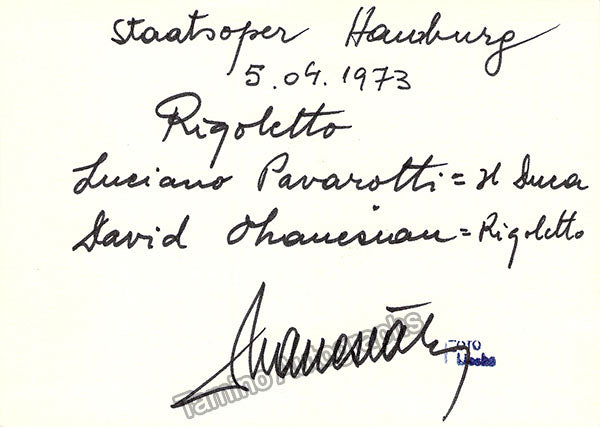 Staatsoper Hamburg
5.04.1973
Rigoletto
Luciano Pavarotti = Il Duca
David Ohanesian = Rigoletto
Ohanesian
Tamino Autographs
FOTO